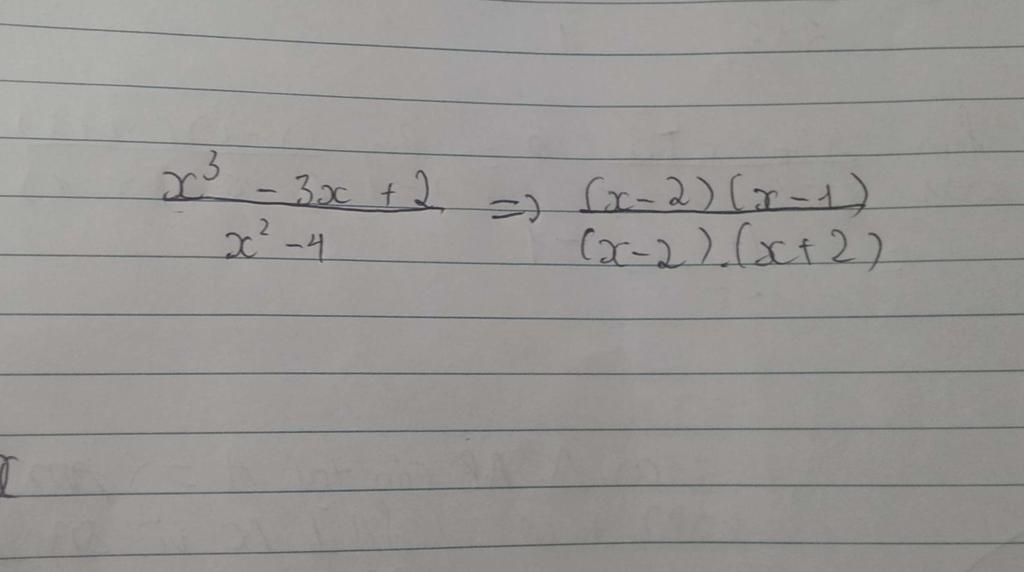 x³ - 3x + 2 / x² - 4 => (x-2)(x-1) / (x-2).(x+2)